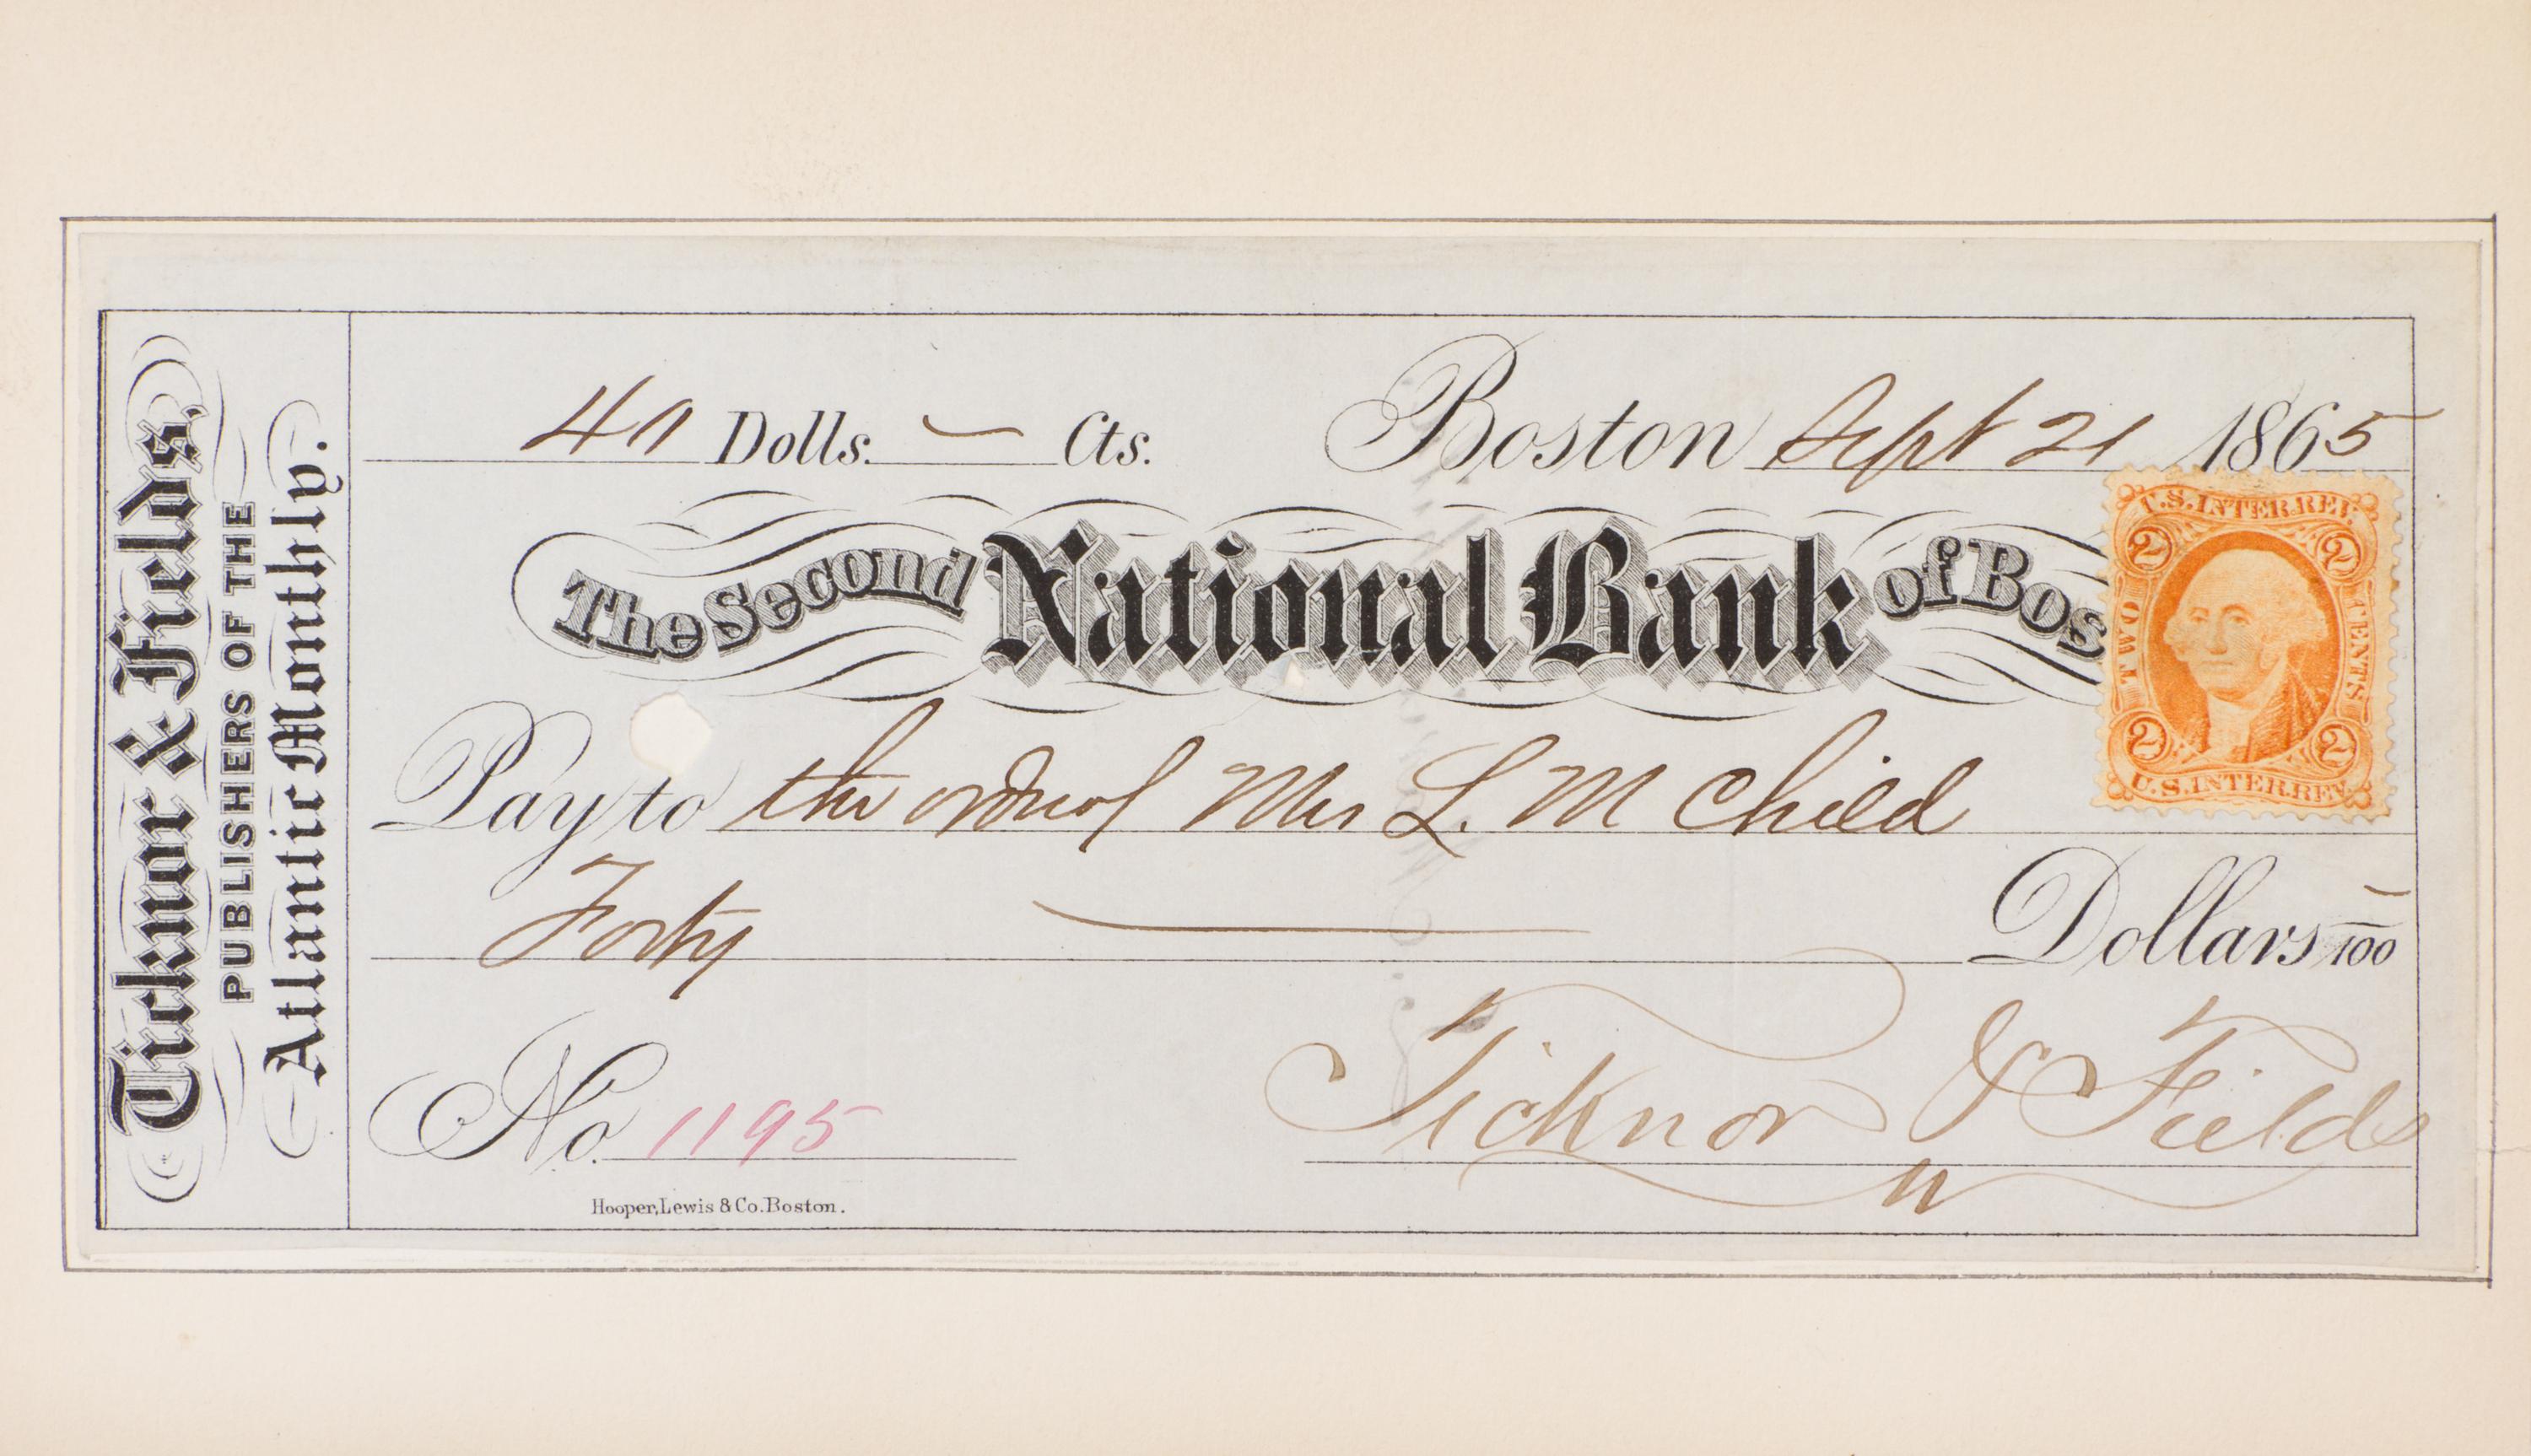 Ticknor & Fields,
PUBLISHERS OF THE
Atlantic Monthly.
40 Dolls. – Cts. Boston Sept 21 1865
The Second National Bank of Bos
U.S. INTER. REV.
2 2
TWO CENTS
2 2
U.S. INTER. REV.
Pay to the order of Mrs L. M Child
Forty — Dollars –/100
No. 1195 Ticknor & Fields
Hooper, Lewis & Co. Boston.